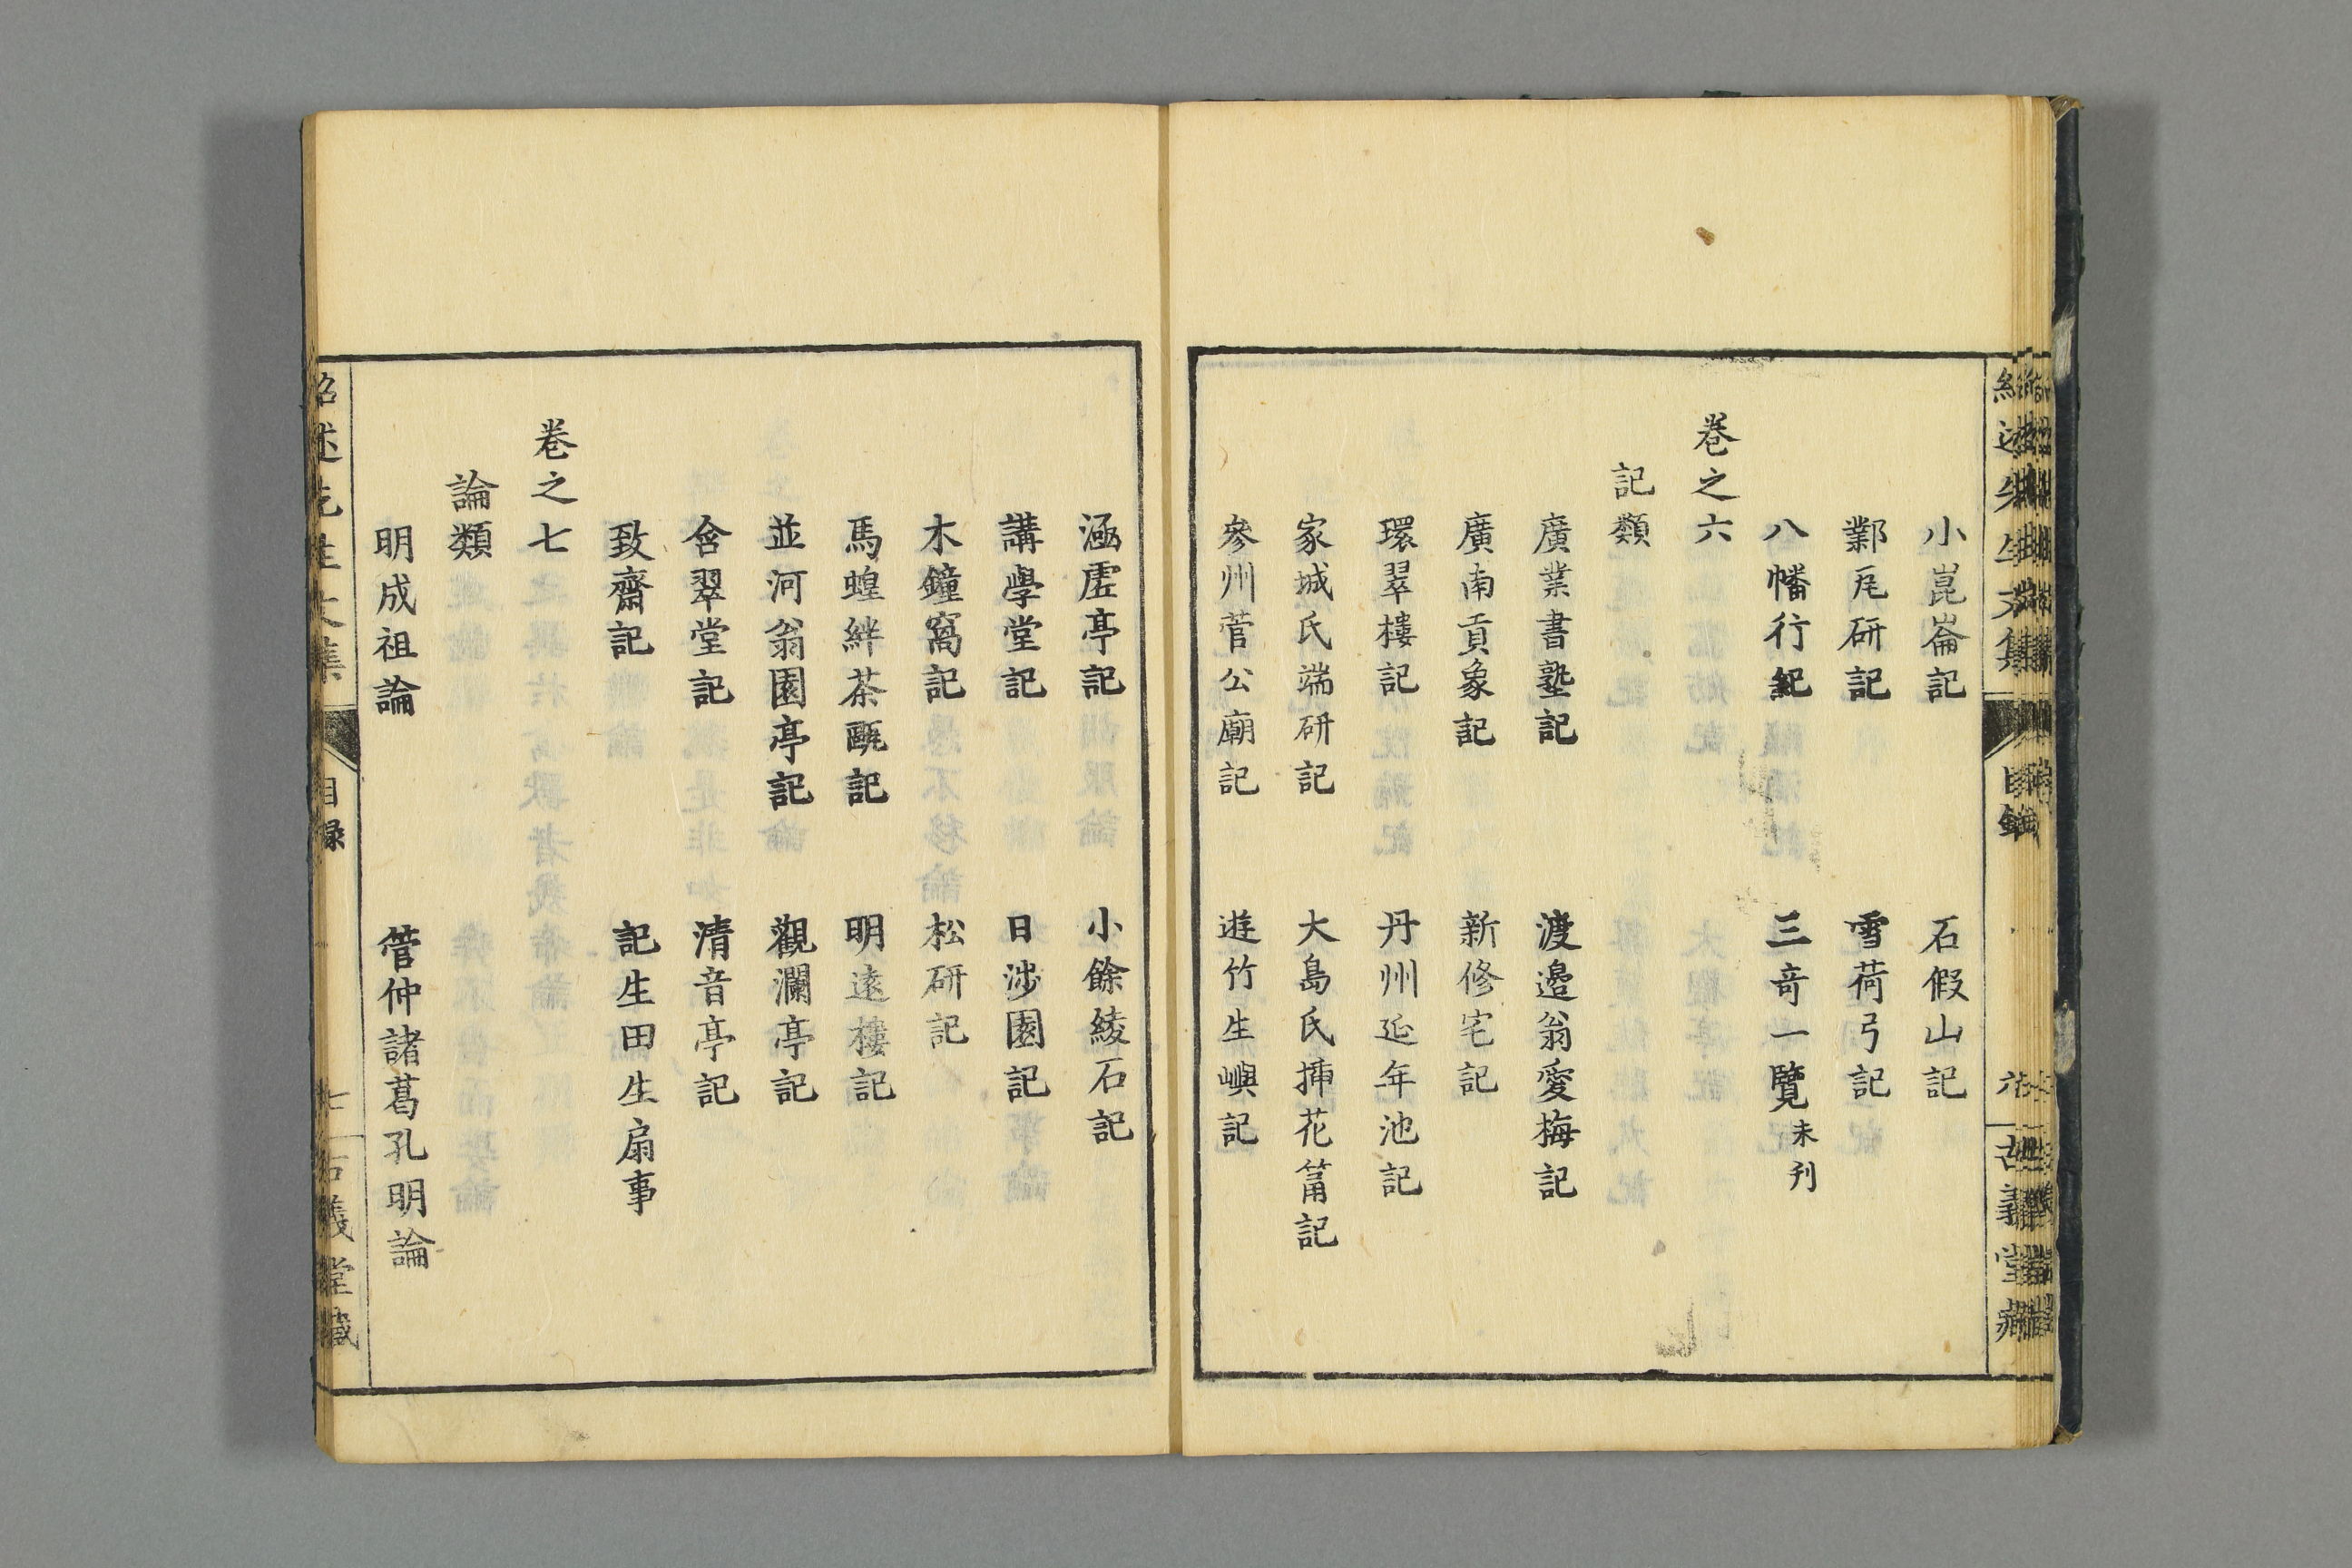 小崑崙記　石假山記
鄴瓦研記　雪荷弓記
八幡行紀　三奇一覽未刋
卷之六
記類
廣業書塾記　渡邉翁愛梅記
廣南貢象記　新修宅記
環翠樓記　丹州延年池記
家城氏端研記　大島氏揷花筩記
參州菅公廟記　遊竹生嶼記
涵虛亭記　小餘綾石記
講學堂記　日涉園記
木鐘窩記　松研記
馬蝗絆茶甌記　明遠樓記
並河翁園亭記　觀瀾亭記
含翠堂記　清音亭記
致齋記　記生田生扇事
卷之七
論類
明成祖論　管仲諸葛孔明論
紹述先生文集　目錄　七　古義堂藏